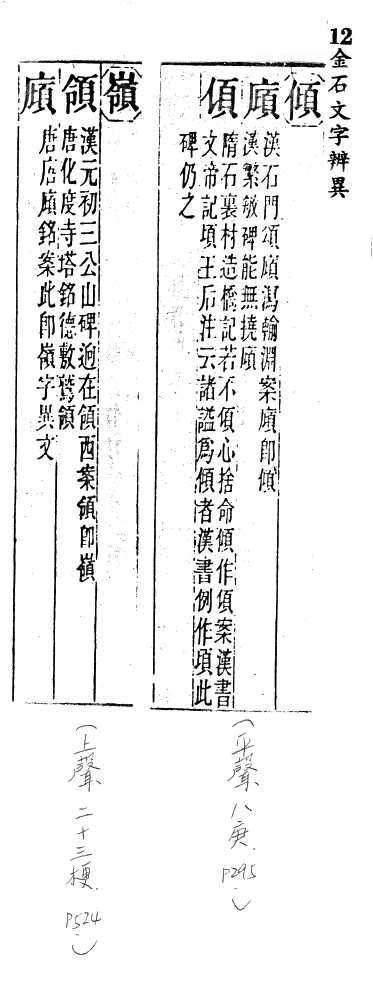 12金石文字辨異
傾
廎
漢石門頌廎瀉輸淵案廎即傾
漢繁敏碑能無撓廎
傾
隋石裏村造橋記若不傾心捨命傾作傾案漢書
文帝記頃王后注云諸謚爲傾者漢書例作頃此
碑仍之
嶺
領
漢元初三公山碑逈在領西案領即嶺
唐化度寺塔銘德敷鷲領
廎
唐唐廎銘案此即嶺字異文
(平聲 八庚. P295.)
(上聲 二十三梗. P524.)